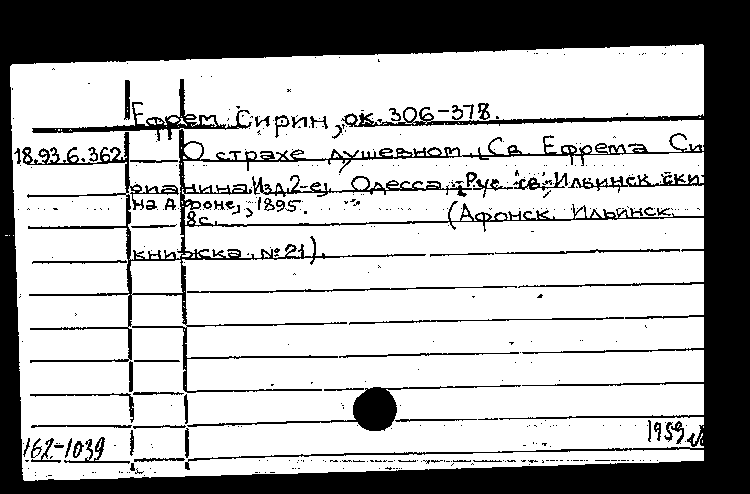 Ефрем Сирин, ок. 306-378.
18.93.6.362 О страхе душевном. [Св. Ефрема Си-
рианина. Изд. 2-е]. Одесса, [Рус. св.-Ильинск. ски-
на Афоне], 1895.
8с. (Афонск. Ильинск.
книжка. №21).
162-1039 1959